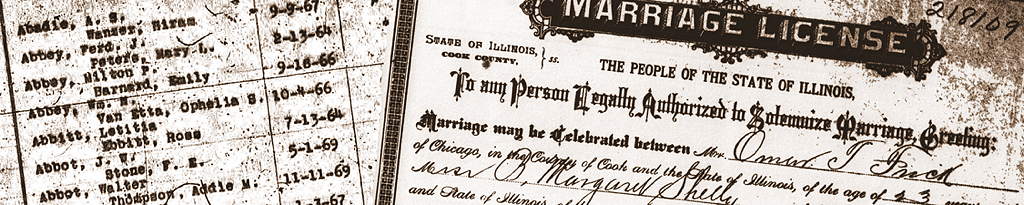 Abadie, A. S.
Wanzer, Hiram 9-9-67
Abbey, Ferd, J.
Peters, Mary L. 8-13-64
Abbey, Hilton P.
Barnard, Emily 9-18-66
Abbey, Wm. H.
Van Etta, Ophelia S. 10-4-66
Abbitt, Letitia
Ebbitt, Ross 7-13-64
Abbot, J. W.
Stone, F. E. 5-1-69
Abbot, Walter
Thompson, Addie M. 11-11-69
MARRIAGE LICENSE
218109
STATE OF ILLINOIS, } ss.
COOK COUNTY.
THE PEOPLE OF THE STATE OF ILLINOIS,
To any Person Legally Authorized to Solemnize Marriage, Greeting:
Marriage may be Celebrated between Mr. Omar T
of Chicago, in the County of Cook and the State of Illinois, of the age of 43
Miss B. Margaret Shelly
and State of Illinois, of